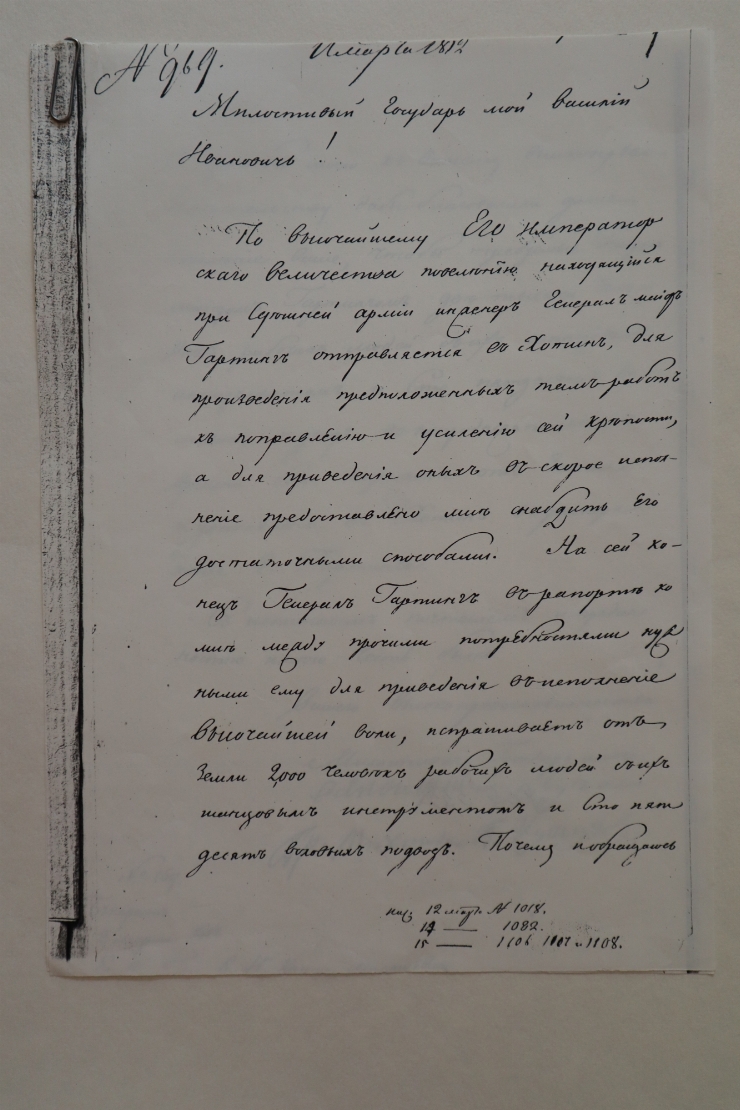 № 969.
11 марта 1812
1
Милостивый Государь мой Василій
Ивановичь!
По высочайшему Его император
скаго величества повелѣнію находящійся
при Дунайской арміи инженеръ Генералъ маіоръ
Гартингъ отправляется въ Хотинъ, для
произведенія предположенныхъ тамъ работъ
къ поправленію и усиленію сей крѣпости,
а для приведенія оныхъ въ скорое испол-
неніе предоставлено мнѣ снабдить Его
достаточными способами. На сей ко-
нецъ Генералъ Гартингъ въ рапортѣ ко
мнѣ между прочими потребностями нуж
ными ему для приведенія въ исполненіе
Высочайшей воли, испрашиваетъ отъ
Земли 2000 человѣкъ рабочихъ людей съ ихъ
шанцовымъ инструментомъ и Сто пять
десятъ воловьихъ подводъ. Почему я обращаюсь
12 мар. № 1018.
14 — 1082.
15 — 1106 1107 и 1108.